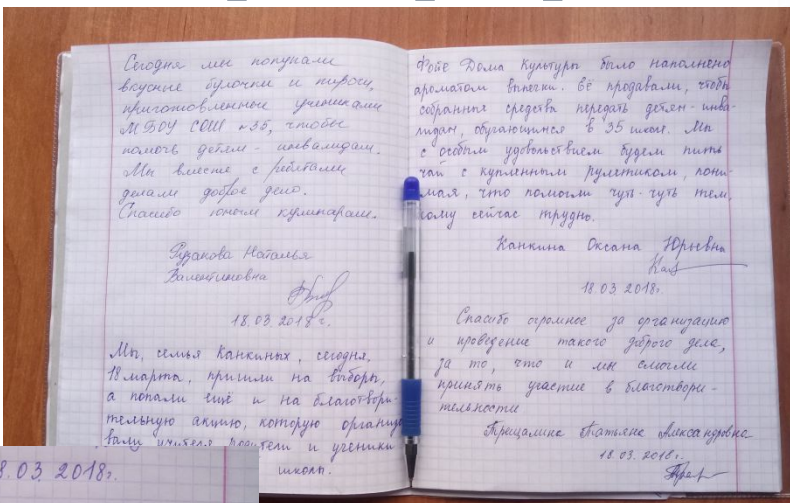 Сегодня мы покупали
вкусные булочки и пироги,
приготовленные учениками
МБОУ СОШ №35, чтобы
помочь детям-инвалидам.
Мы вместе с ребятами
делали доброе дело.
Спасибо юным кулинарам.
Наталья
Валентиновна
18.03.2018г.
Мы, семья Канкиных, сегодня,
18 марта, пришли на выборы,
а попали ещё и на благотвори-
тельную акцию, которую организо
вали учителя, родители и ученики
школы.
8.03.2018г.
Фойе Дома Культуры было наполнено
ароматом выпечки. Её продавали, чтобы
собранные средства передать детям-инва-
лидам, обучающимся в 35 школе. Мы
с особым удовольствием будем пить
чай с купленным рулетиком, пони-
мая, что помогли чуть-чуть тем,
кому сейчас трудно.
Канкина Оксана Юрьевна
18.03.2018г.
Спасибо огромное за организацию
и проведение такого доброго дела,
за то, что и мы смогли
принять участие в благотвори-
тельности
Татьяна Александровна
18.03.2018г.